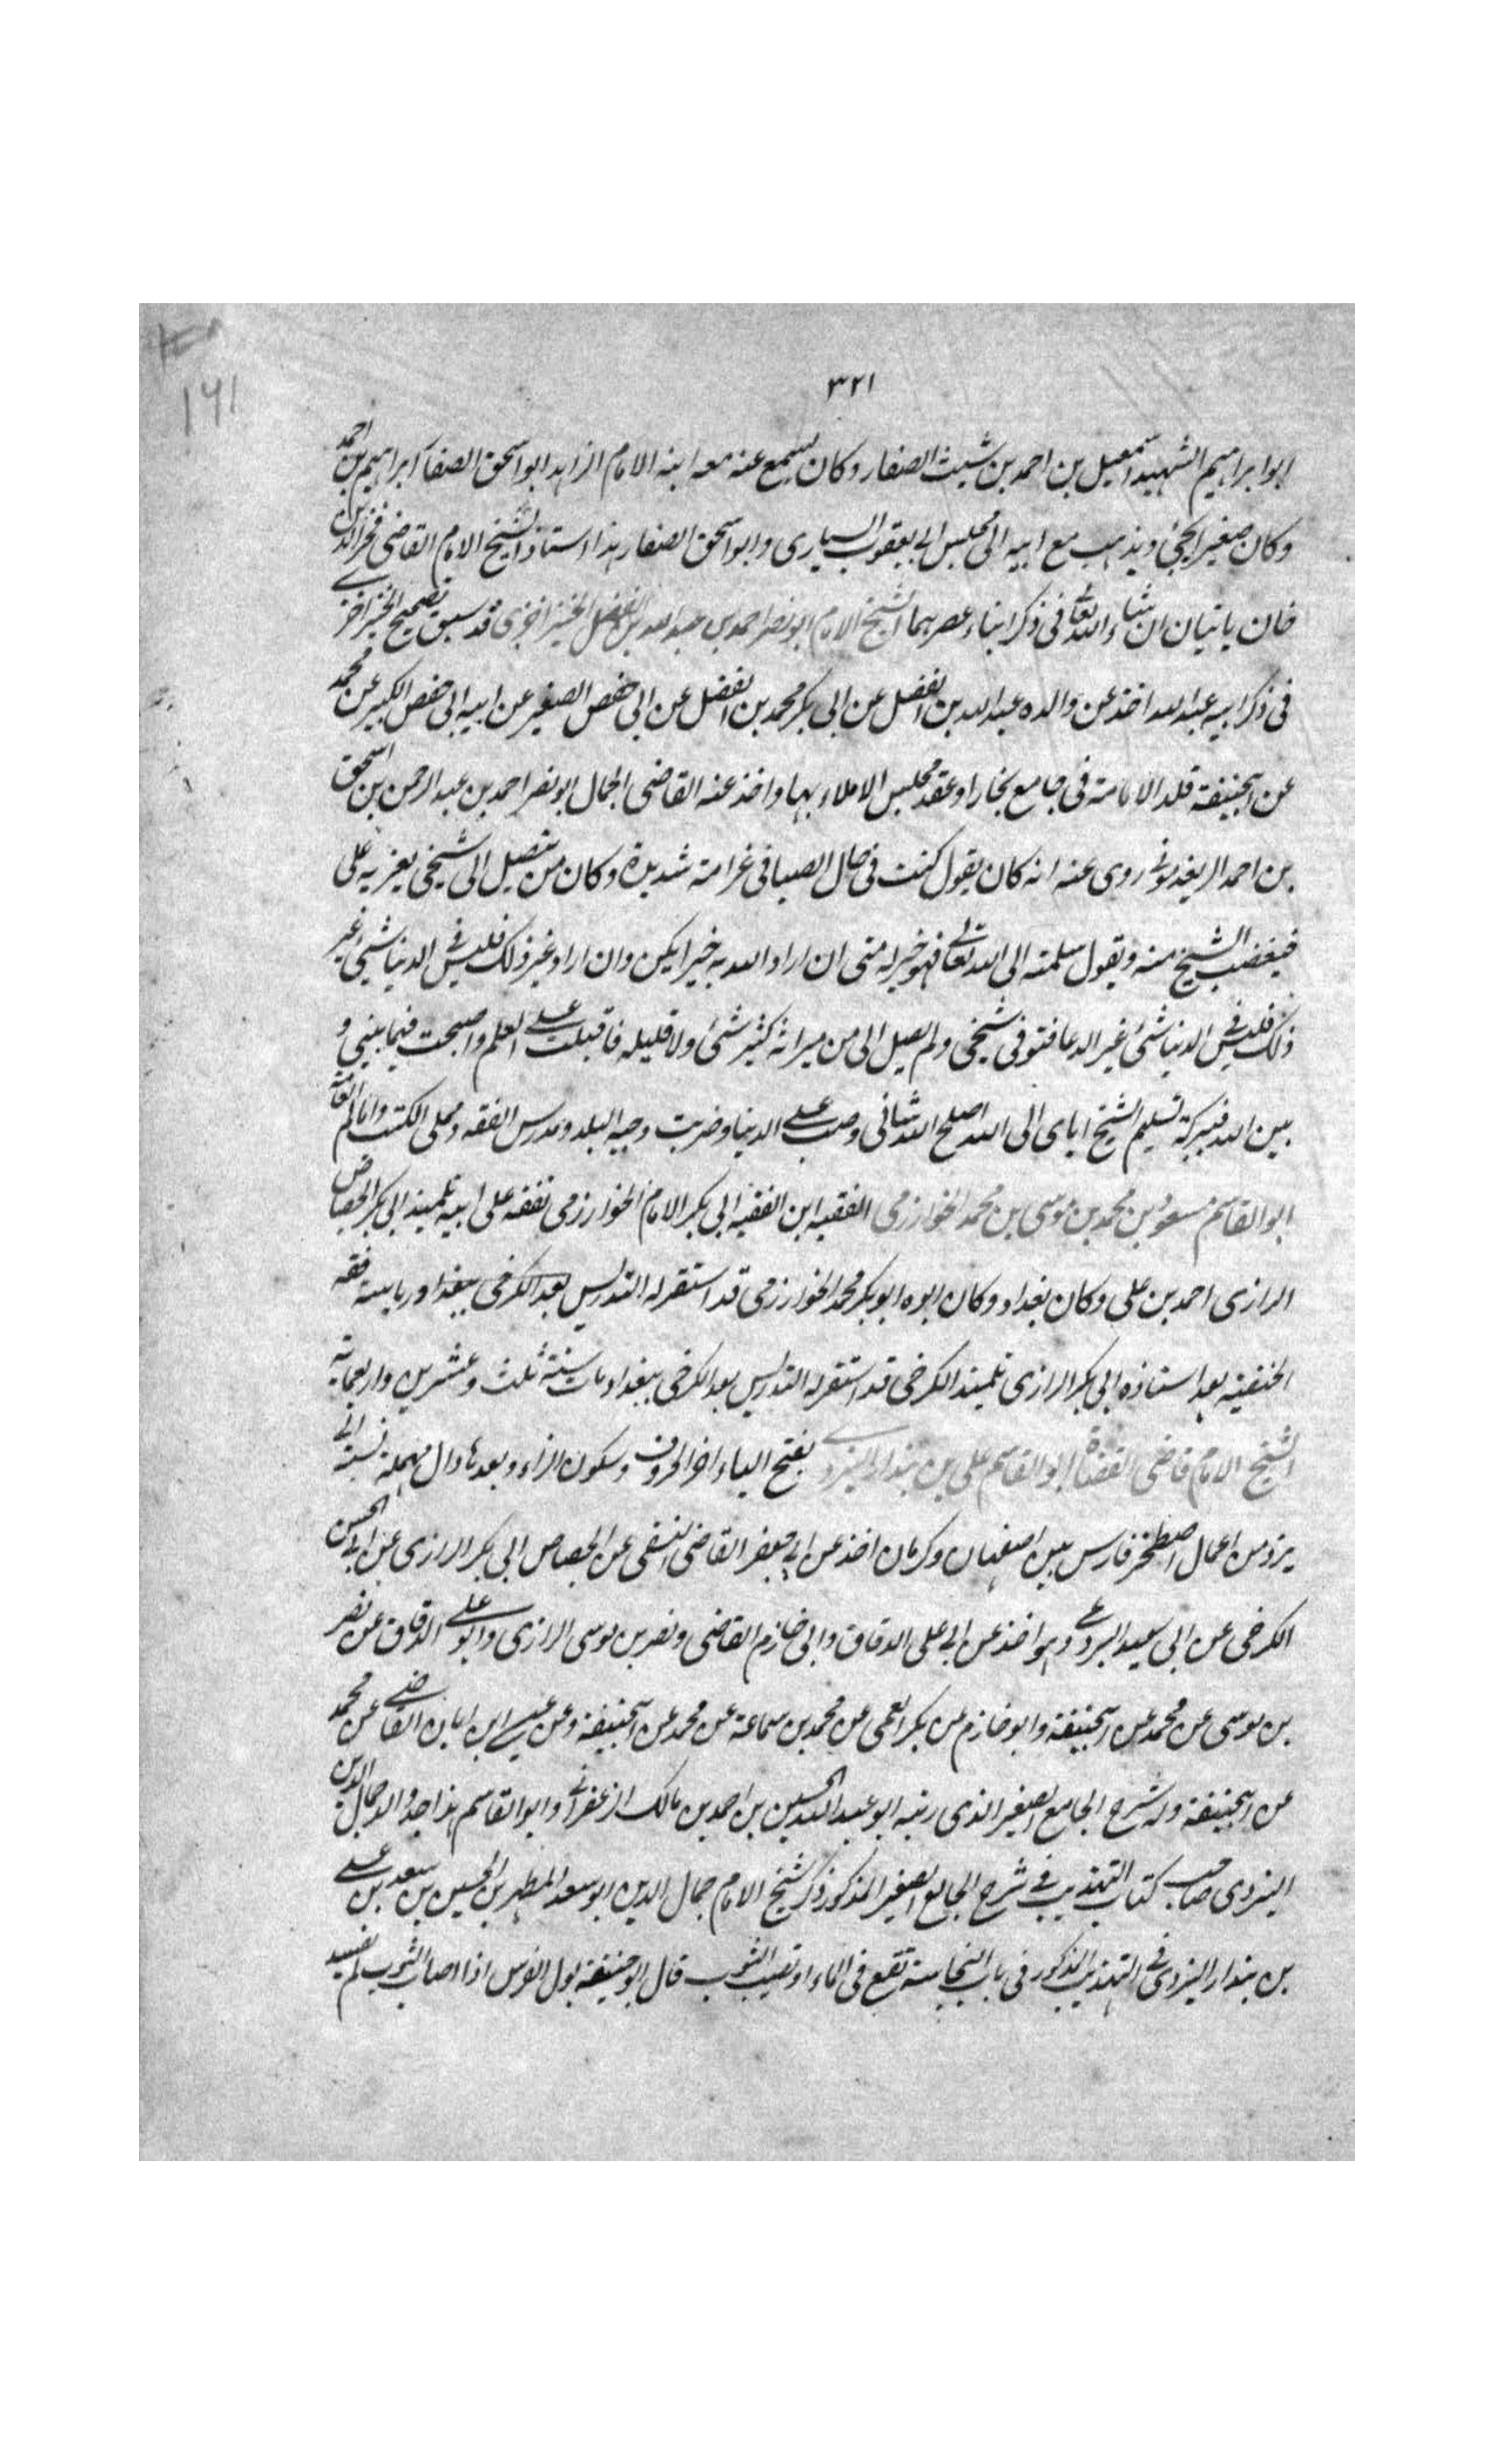 ١٦١
٣٢١
ابو ابراهيم الشهيد اسمعيل بن احمد بن شيث الصفار وكان يسمع عنه معه ابنه الامام الزاهد ابو اسحق الصفار ابراهيم بن احمد
وكان صغيرا يجئ ويذهب مع ابيه الى مجلس ابى يعقوب السيارى وابو اسحق الصفار هذا استاذ الشيخ الامام القاضى فخر الدين
خان ياتيان ان شاء الله تعالى فى ذكر ابناء عصرهما الشيخ الامام ابو نصر احمد بن عبد الله بن الفضل الخيزاخزى قد سبق تصحيح الخيزاخزى
فى ذكر ابيه عبد الله اخذ عن والده عبد الله بن الفضل عن ابى بكر محمد بن الفضل عن ابى حفص الصغير عن ابيه ابى حفص الكبير عن محمد
عن ابيحنيفة قلد الامامة فى جامع بخارا وعقد مجلس الاملاء بها واخذ عنه القاضى الجمال ابو نصر احمد بن عبد الرحمن بن اسحق
بن احمد الريغدمونى روى عنه انه كان يقول كنت فى حال الصبا فى غرامة شديدة وكان من يتصل الى شيخى يغريه على
فيغضب الشيخ منه ويقول سلمته الى الله تعالى فهو خير له منى ان اراد الله به خيرا يكن وان اراد غير ذلك فليس فى الدنيا شئ غير
ذلك فليس فى الدنيا شئ غير الدعا فتوفى شيخى ولم يصل الى من ميراثه كثير شئ ولا قليله فاقبلت على العلم واصبحت فيما بينى و
بين الله فببركة تسليم الشيخ اياى الى الله اصلح الله شانى وصب على الدنيا وضربت وجيه البلد ومدرس الفقه ومملى الكتب وامام العامة
ابو القاسم مسعود بن محمد بن موسى بن محمد الخوارزمى الفقيه ابن الفقيه ابى بكر الامام الخوارزمى تفقه على ابيه تلميذ ابى بكر الجصاص
الرازى احمد بن على وكان بغداد وكان ابوه ابو بكر محمد الخوارزمى قد استقر له التدريس بعد الكرخى ببغداد ورياسة فقه
الحنفية بعد استاذه ابى بكر الرازى تلميذ الكرخى قد استقر له التدريس بعد الكرخى ببغداد مات سنة ثلث وعشرين واربعماية
الشيخ الامام قاضى القضاة ابو القاسم على بن بندار اليزدى بفتح الياء اخر الحروف وسكون الزاء وبعدها دال مهملة نسبة الى
يزد من اعمال اصطخر فارس بين اصفهان وكرمان اخذ عن ابى جعفر القاضى النسفى عن الجصاص ابى بكر الرازى عن ابى الحسن
الكرخى عن ابى سعيد البردعى وهو اخذ عن ابى على الدقاق وابى خازم القاضى ونصر بن موسى الرازى وابو على الدقاق عن نصر
بن موسى عن محمد عن ابيحنيفة وابو خازم عن بكر العمى عن محمد بن سماعة عن محمد عن ابيحنيفة وعن عيسى ابن ابان القاضى عن محمد
عن ابيحنيفة وله شرح الجامع الصغير الذى رتبه ابو عبد الله الحسين بن احمد بن مالك الزعفرانى وابو القاسم هذا جد والد جمال الدين
اليزدى صاحب كتاب التهذيب فى شرح الجامع الصغير المذكور ذكر شيخ الامام جمال الدين ابو سعد المطهر بن الحسين بن سعد بن على
بن بندار اليزدى فى التهذيب المذكور فى باب النجاسة تقع فى الماء او تصيب الثوب قال ابو حنيفة بول الفرس اذا اصاب الثوب لم يفسد